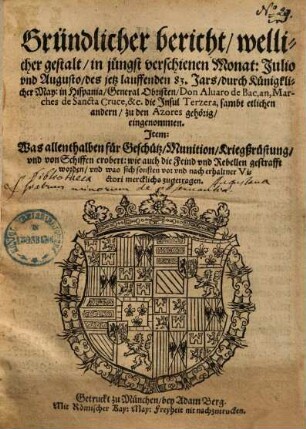 Gründlicher bericht / welli-
cher gestalt / in jüngst verschienen Monat: Julio
vnd Augusto / des jetz lauffenden 83. Jars / durch Künigkli-
cher May: in Hispania / General Obristen / Don Aluaro de Bac,an, Mar-
ches de Sancta Cruce, &c. die Insul Terzera, sambt etlichen
andern / zu den Azores gehörig /
eingenommen.
Item:
Was allenthalben für Geschütz / Munition / Kriegßrüstung /
vnd von Schiffen erobert: wie auch die Feind vnd Rebellen gestrafft
worden / vnd was sich sonsten vor vnd nach erhaltner Vi-
ctori merckliche zugetragen.
Bibliotheca
fratrum minorum
Augustana
Getruckt zu München / bey Adam Berg.
Mit Römischer Kay: May: Freyheit nit nachzutrucken.